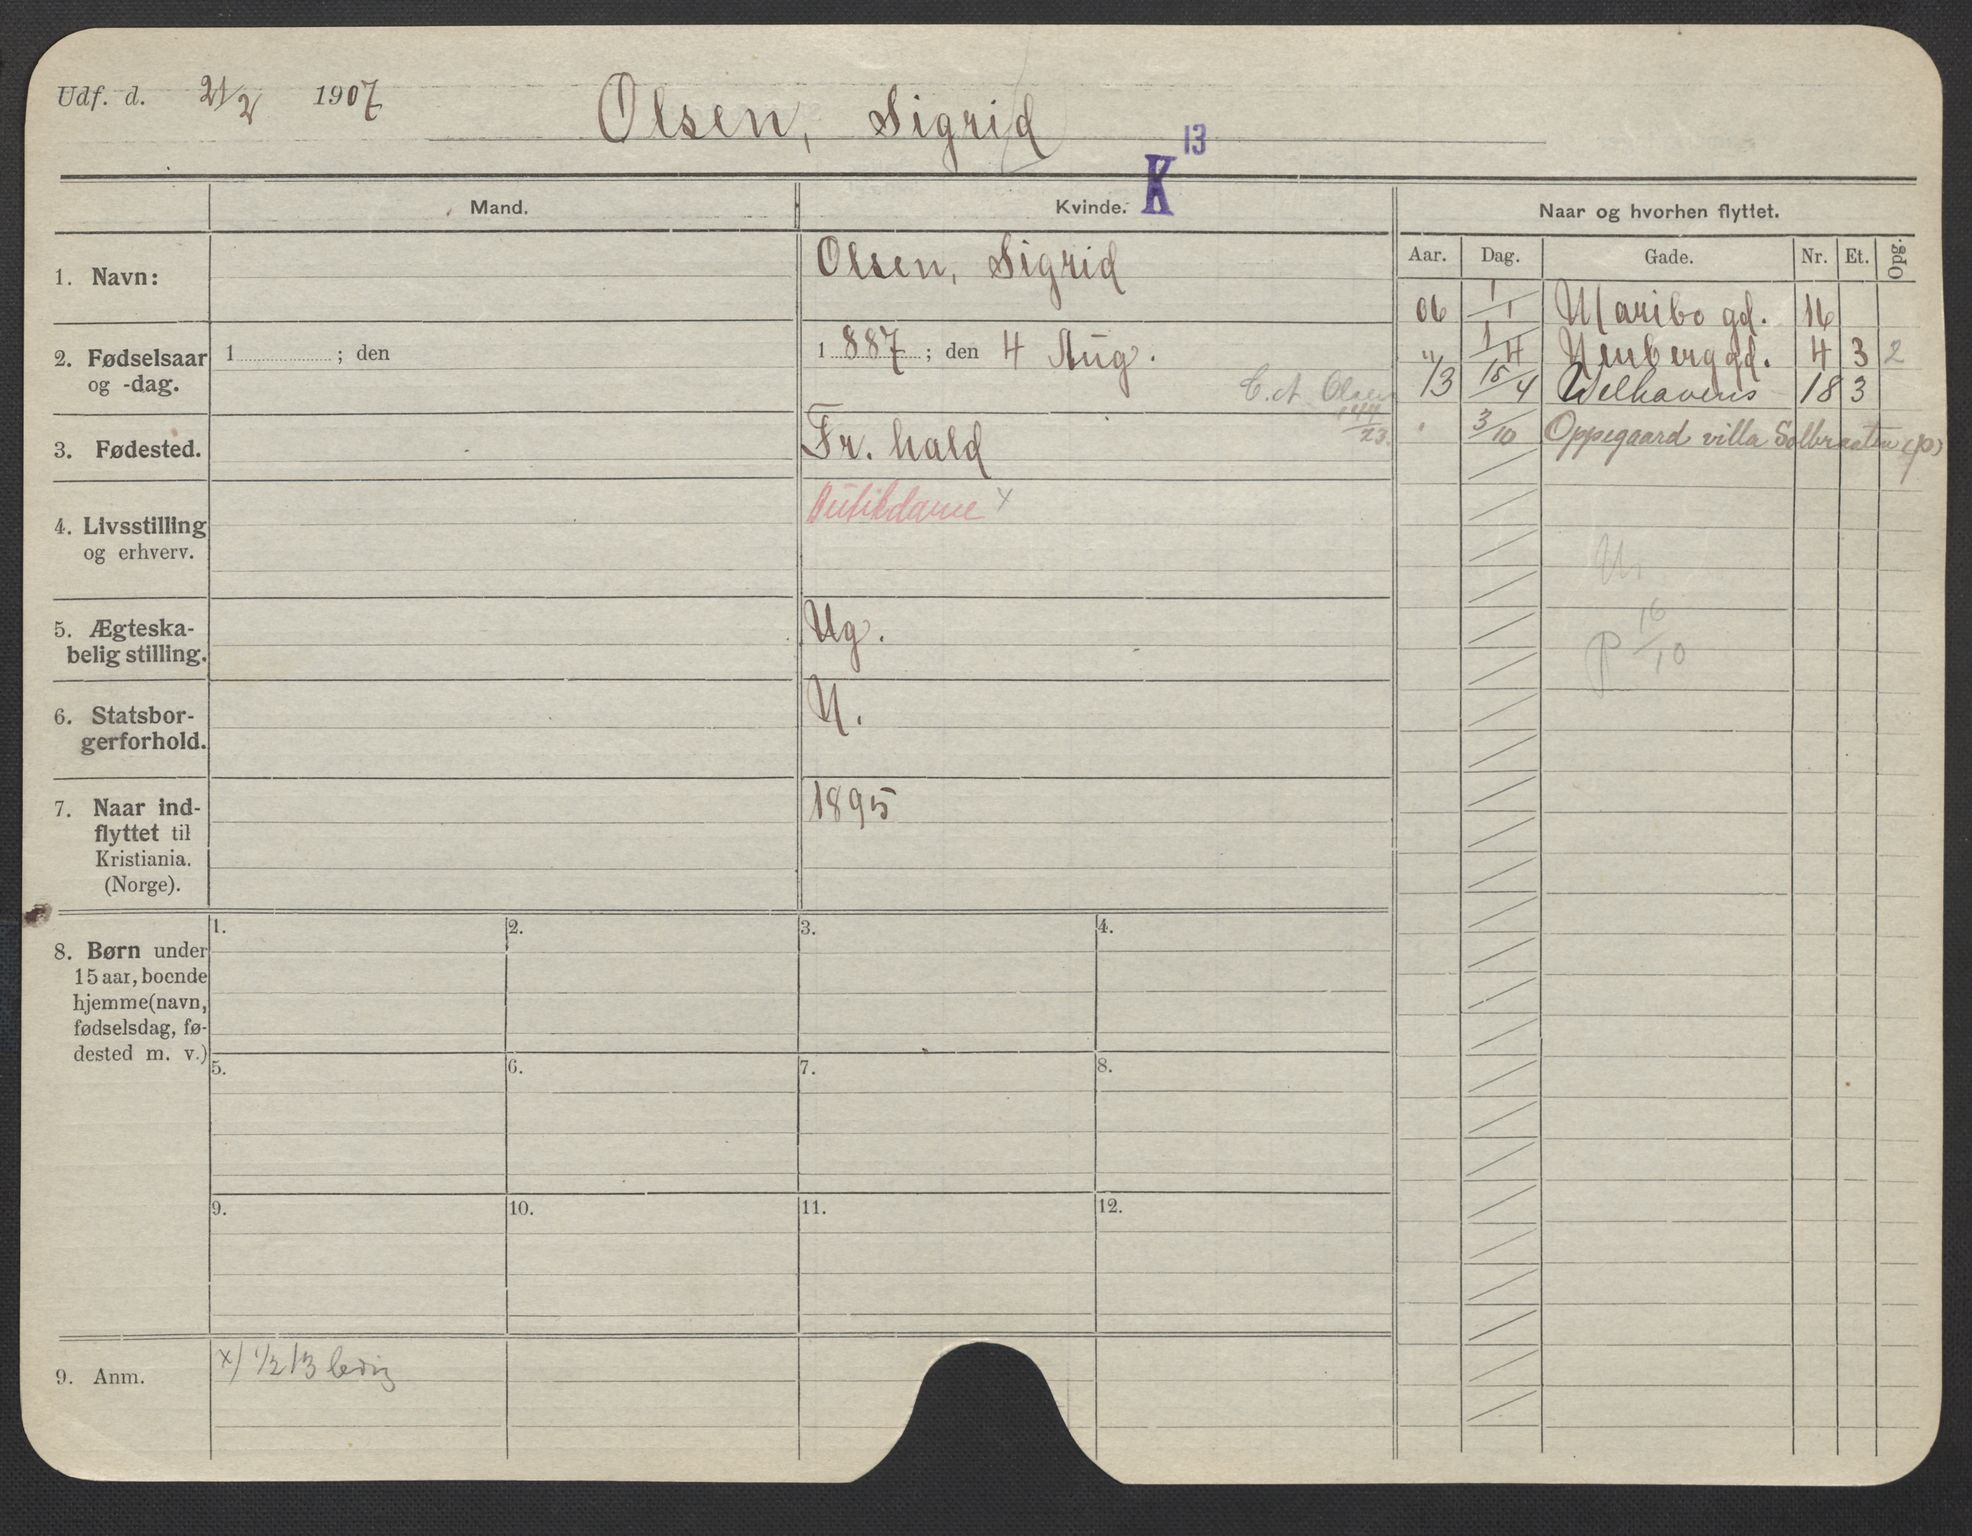 Udf. d. 21/2 1907 Olsen, Sigrid
K 13
Mand. Kvinde. Naar og hvorhen flyttet.
Aar. Dag. Gade. Nr. Et. Opg.
1. Navn: Olsen, Sigrid
06 1/1 Maribo gd. 16
2. Fødselsaar 1 ; den 1 887 ; den 4 Aug.
og -dag.
" 1/4 gd. 4 3 2
13 15/4 Welhavens 18 3
C. A. Olsen
144/23.
3. Fødested. Fr. hald
" 3/10 Oppegaard villa Solbraaten (p)
4. Livsstilling Butikdame x
og erhverv.
5. Ægteska- Ug.
belig stilling.
P 16/10
6. Statsbor- N.
gerforhold.
7. Naar ind- 1895
flyttet til
Kristiania.
(Norge).
8. Børn under
15 aar, boende
hjemme (navn,
fødselsdag, fø-
dested m. v.)
1. 2. 3. 4.
5. 6. 7. 8.
9. 10. 11. 12.
9. Anm. x) 1/2 13 ledig